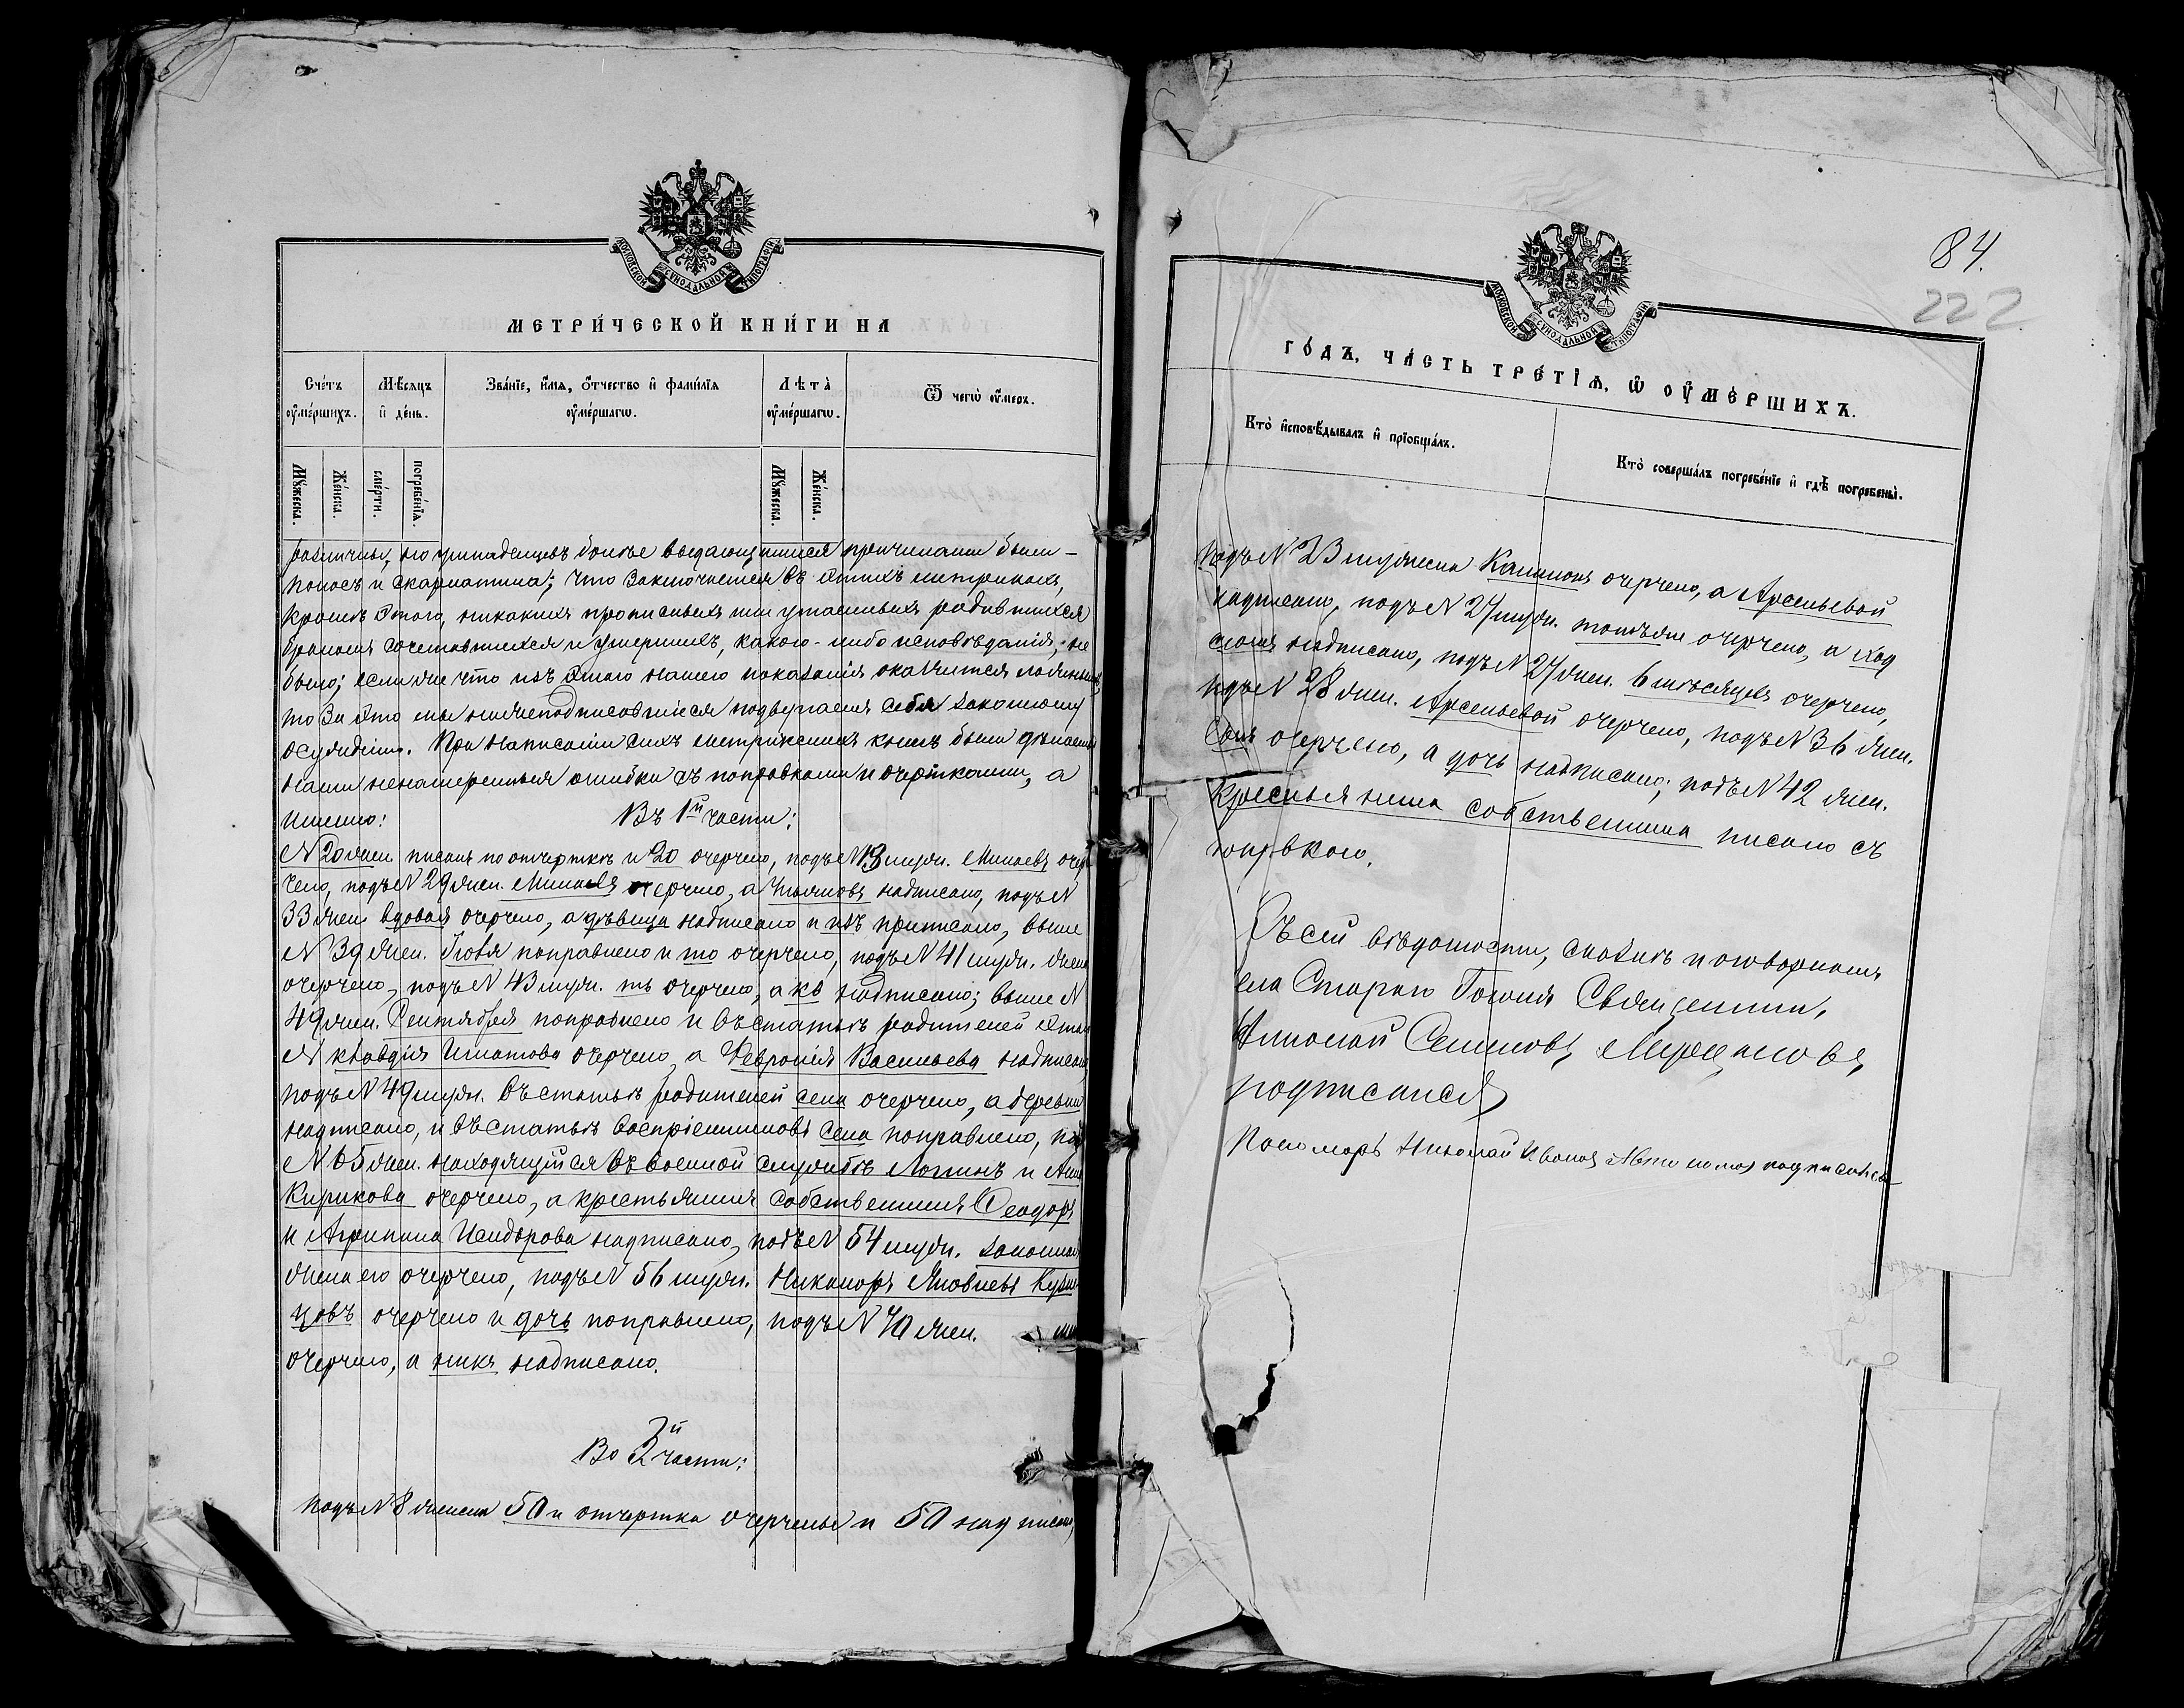 МОСКОВСКОЙ СѴНОДАЛЬНОЙ ТИПОГРАФІИ
МЕТРИ́ЧЕСКОЙ КНИ́ГИ НА
Сче́тъ ᲂу҆ме́ршихъ.
Мѣ́сяцъ и҆ де́нь.
Зва́нїе, и҆́мѧ, ѻ҆́тчество и҆ фами́лїѧ ᲂу҆ме́ршагѡ.
Лѣ́та ᲂу҆ме́ршагѡ.
Ѿ чегѡ̀ ᲂу҆́меръ.
Мꙋ́жеска.
Же́нска.
сме́рти.
погребе́нїѧ.
Мꙋ́жеска.
Же́нска.
различны, но у младенцевъ более выдающимися причинами были –
поносъ и скарлатина; что заключается въ этихъ метрикахъ,
кромѣ этого, никакихъ прописныхъ или утаенныхъ родившихся
бракомъ сочетавшихся и умершихъ, какого-либо исповѣданія, не
было; если же что изъ этого нашего показанія окажется ложнымъ,
то за это мы нижеподписавшіеся подвергаемъ себя законному
осужденію. При написаніи сихъ метрическихъ книгъ были сдѣланы
нами ненамеренныя ошибки съ поправками и очертками, а
именно: Въ 1й части:
№ 20 жен. писанъ по отчерткѣ и 20 очерчено, подъ № 13 мужс. Минаевъ очер-
чено, подъ № 29 жен. Минаевъ очерчено, а Ульяновъ надписано, подъ №
33 жен. вдовая очерчено, а дѣвица надписано и изъ приписано, выше
№ 39 жен. Іювъ поправлено и то очерчено, подъ № 41 мужс. жена
очерчено, подъ № 43 мужс. тъ очерчено, а ка надписано; выше №
49 жен. Сентября поправлено и въ статьѣ родителей этаго
№ Клавдія Игнатова очерчено, а Февронія Васильева надписано,
подъ № 49 мужс. въ статьѣ родителей села очерчено, а деревни
надписано, и въ статьѣ воспріемниковъ села поправлено, подъ
№ 65 жен. находящійся въ военной службѣ Логинъ и Анна
Кирикова очерчено, а крестьянинъ собственникъ Ѳеодоръ
и Агрипина Исидорова надписано, подъ № 54 мужс. законная
жена его очерчено, подъ № 56 мужс. Никаноръ Яковлевъ Кузне-
цовъ очерчено и дочь поправлено, подъ № 70 жен.
очерчено, а никъ надписано.
Во 2й части:
подъ № 8 женска 50 и отчертка очерчены и 50 надписано,
84.
222
МОСКОВСКОЙ СѴНОДАЛЬНОЙ ТИПОГРАФІИ
ГО́ДЪ, ЧА́СТЬ ТРЕ́ТЇѦ, Ѡ҆ ᲂУ҆МЕ́РШИХЪ.
Кто̀ и҆сповѣ́дывалъ и҆ прїобща́лъ.
Кто̀ соверша́лъ погребе́нїе и҆ гдѣ̀ погребены̀.
подъ № 23 мужеска очерчено, а Арсеньевой
надписано, подъ № 24 мужс. очерчено, а
надписано, подъ № 27 жен. 6 мѣсяцевъ очерчено,
подъ № 28 жен. Арсеньевой очерчено, подъ № 36 жен.
сынъ очерчено, а дочь надписано; подъ № 42 жен.
крестьянина собственника писано съ
поправкою.
Къ сей вѣдомости, сказкѣ и оговоркамъ
села Стараго Священникъ,
Николай Семеновъ Мерцаловъ,
подписался
Пономарь Николай Ивановъ Автономовъ подписался